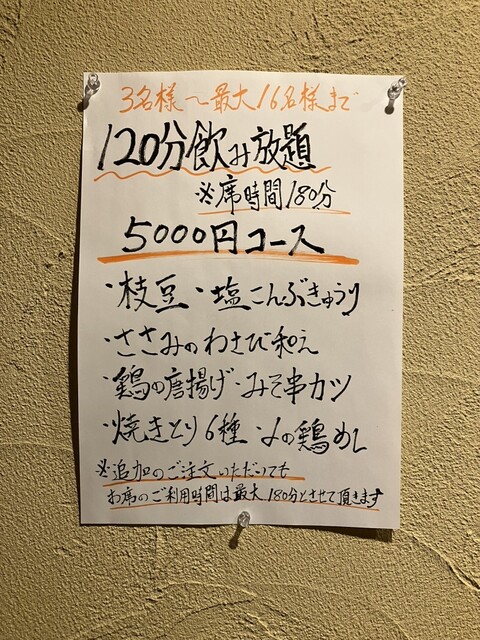 3名様〜最大16名様まで
120分飲み放題
※席時間180分
5000円コース
・枝豆・塩こんぶきゅうり
・ささみのわさび和え
・鶏の唐揚げ・みそ串カツ
・焼きとり6種・〆の鶏めし
※追加のご注文いただいても
お席のご利用時間は最大180分とさせて頂きます